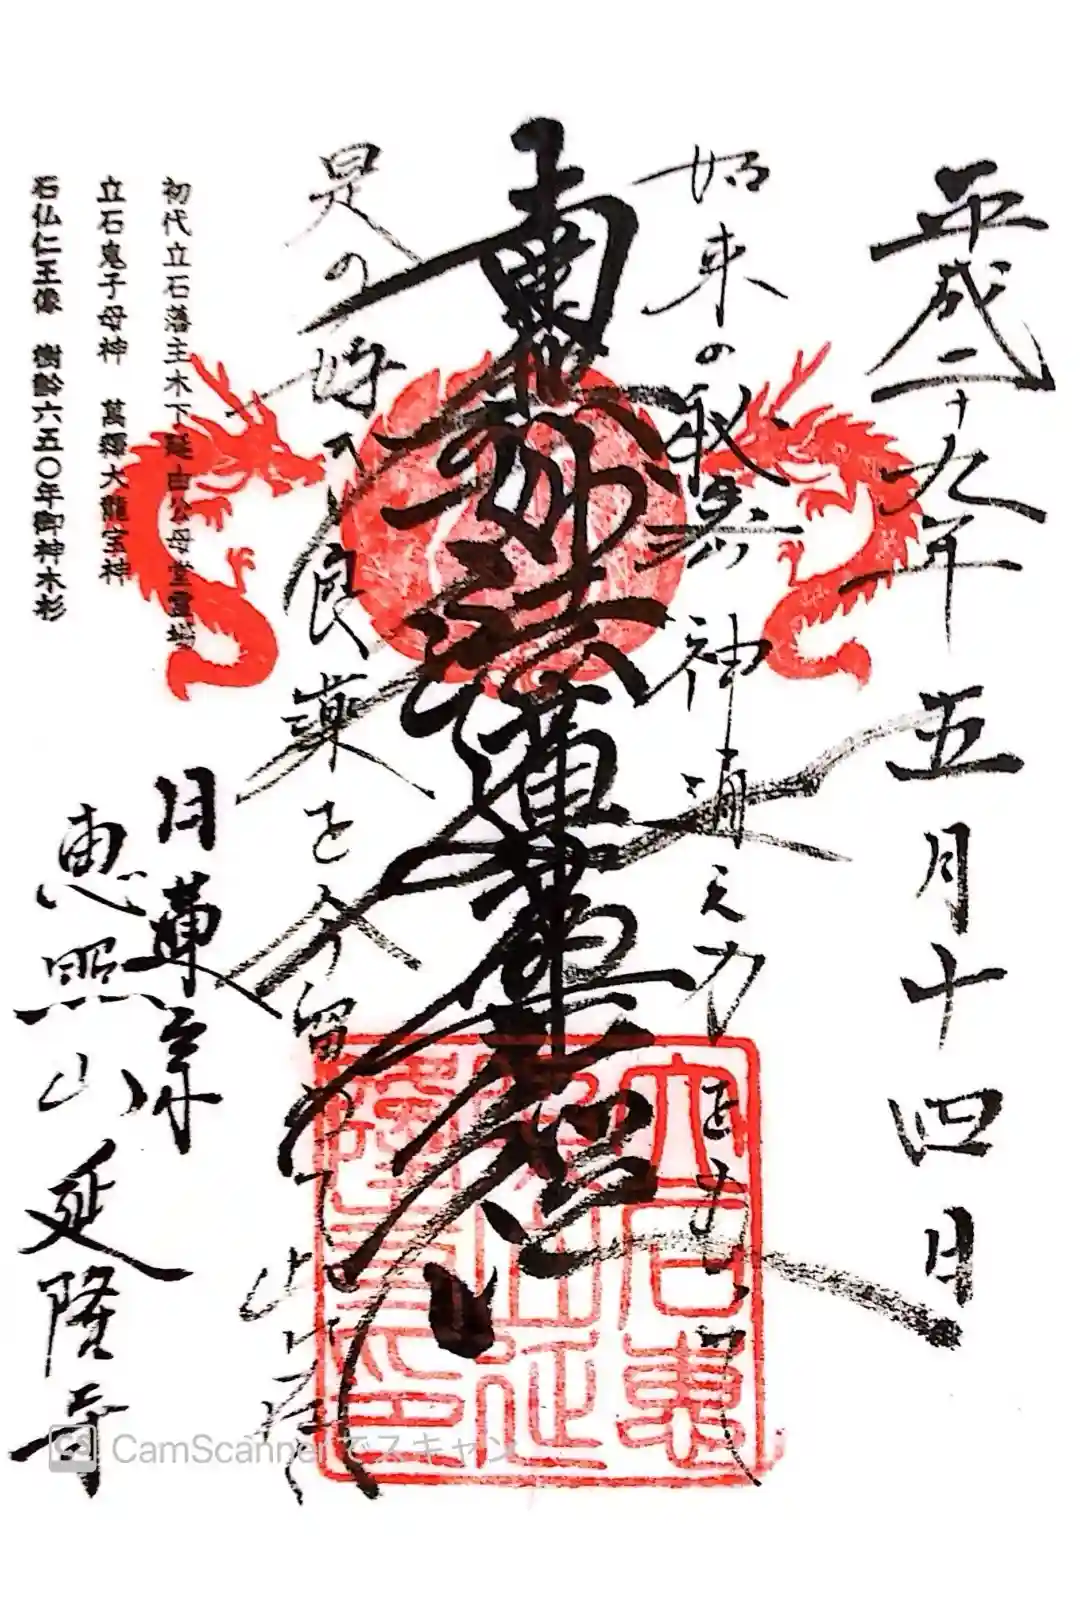 平成二十九年 五月十四日
如来の秘密 神通之力
南無妙法蓮華経
是の好き良薬を今留めて
初代立石藩主木下延由公母堂霊場
立石鬼子母神 萬釋大龍宝神
石仏仁王像 樹齢六五〇年御神木杉
日蓮宗
恵照山 延隆寺
CS CamScannerでスキャン